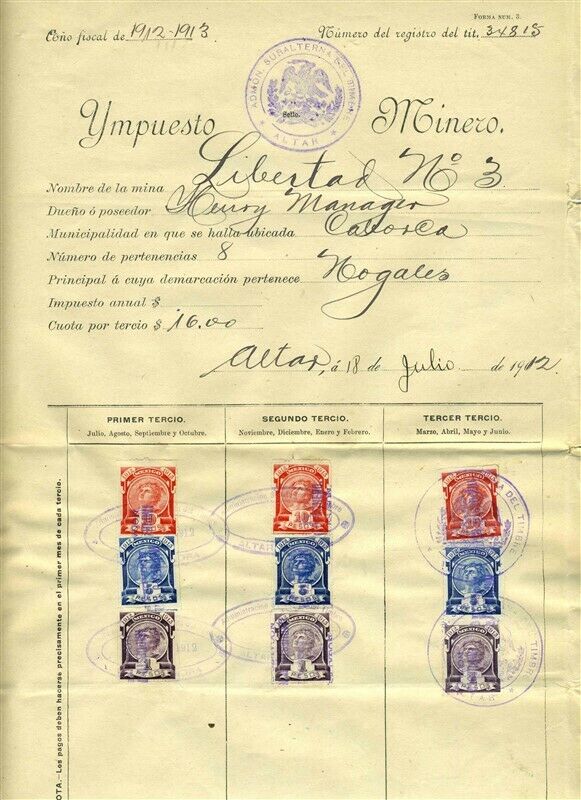 FORMA NUM. 3.
Año fiscal de 1912-1913
Número del registro del tit. 34815
ADMÓN. SUBALTERNA DEL TIMBRE
Sello.
ALTAR
Ympuesto Minero.
Nombre de la mina Libertad Nº 3
Dueño ó poseedor Henry Manager
Municipalidad en que se halla ubicada Caborca
Número de pertenencias 8
Principal á cuya demarcación pertenece Nogales
Impuesto anual $
Cuota por tercio $ 16.00
Altar, á 18 de Julio de 1912.
PRIMER TERCIO.
Julio, Agosto, Septiembre y Octubre.
SEGUNDO TERCIO.
Noviembre, Diciembre, Enero y Febrero.
TERCER TERCIO.
Marzo, Abril, Mayo y Junio.
MEXICO
MEXICO
MEXICO
10 PESOS
MEXICO
MEXICO
MEXICO
5 PESOS
MEXICO
MEXICO
MEXICO
1 PESO
1912
1912
ALTAR
DEL TIMBRE
TIMBRE
ALTAR
OTA.—Los pagos deben hacerse precisamente en el primer mes de cada tercio.